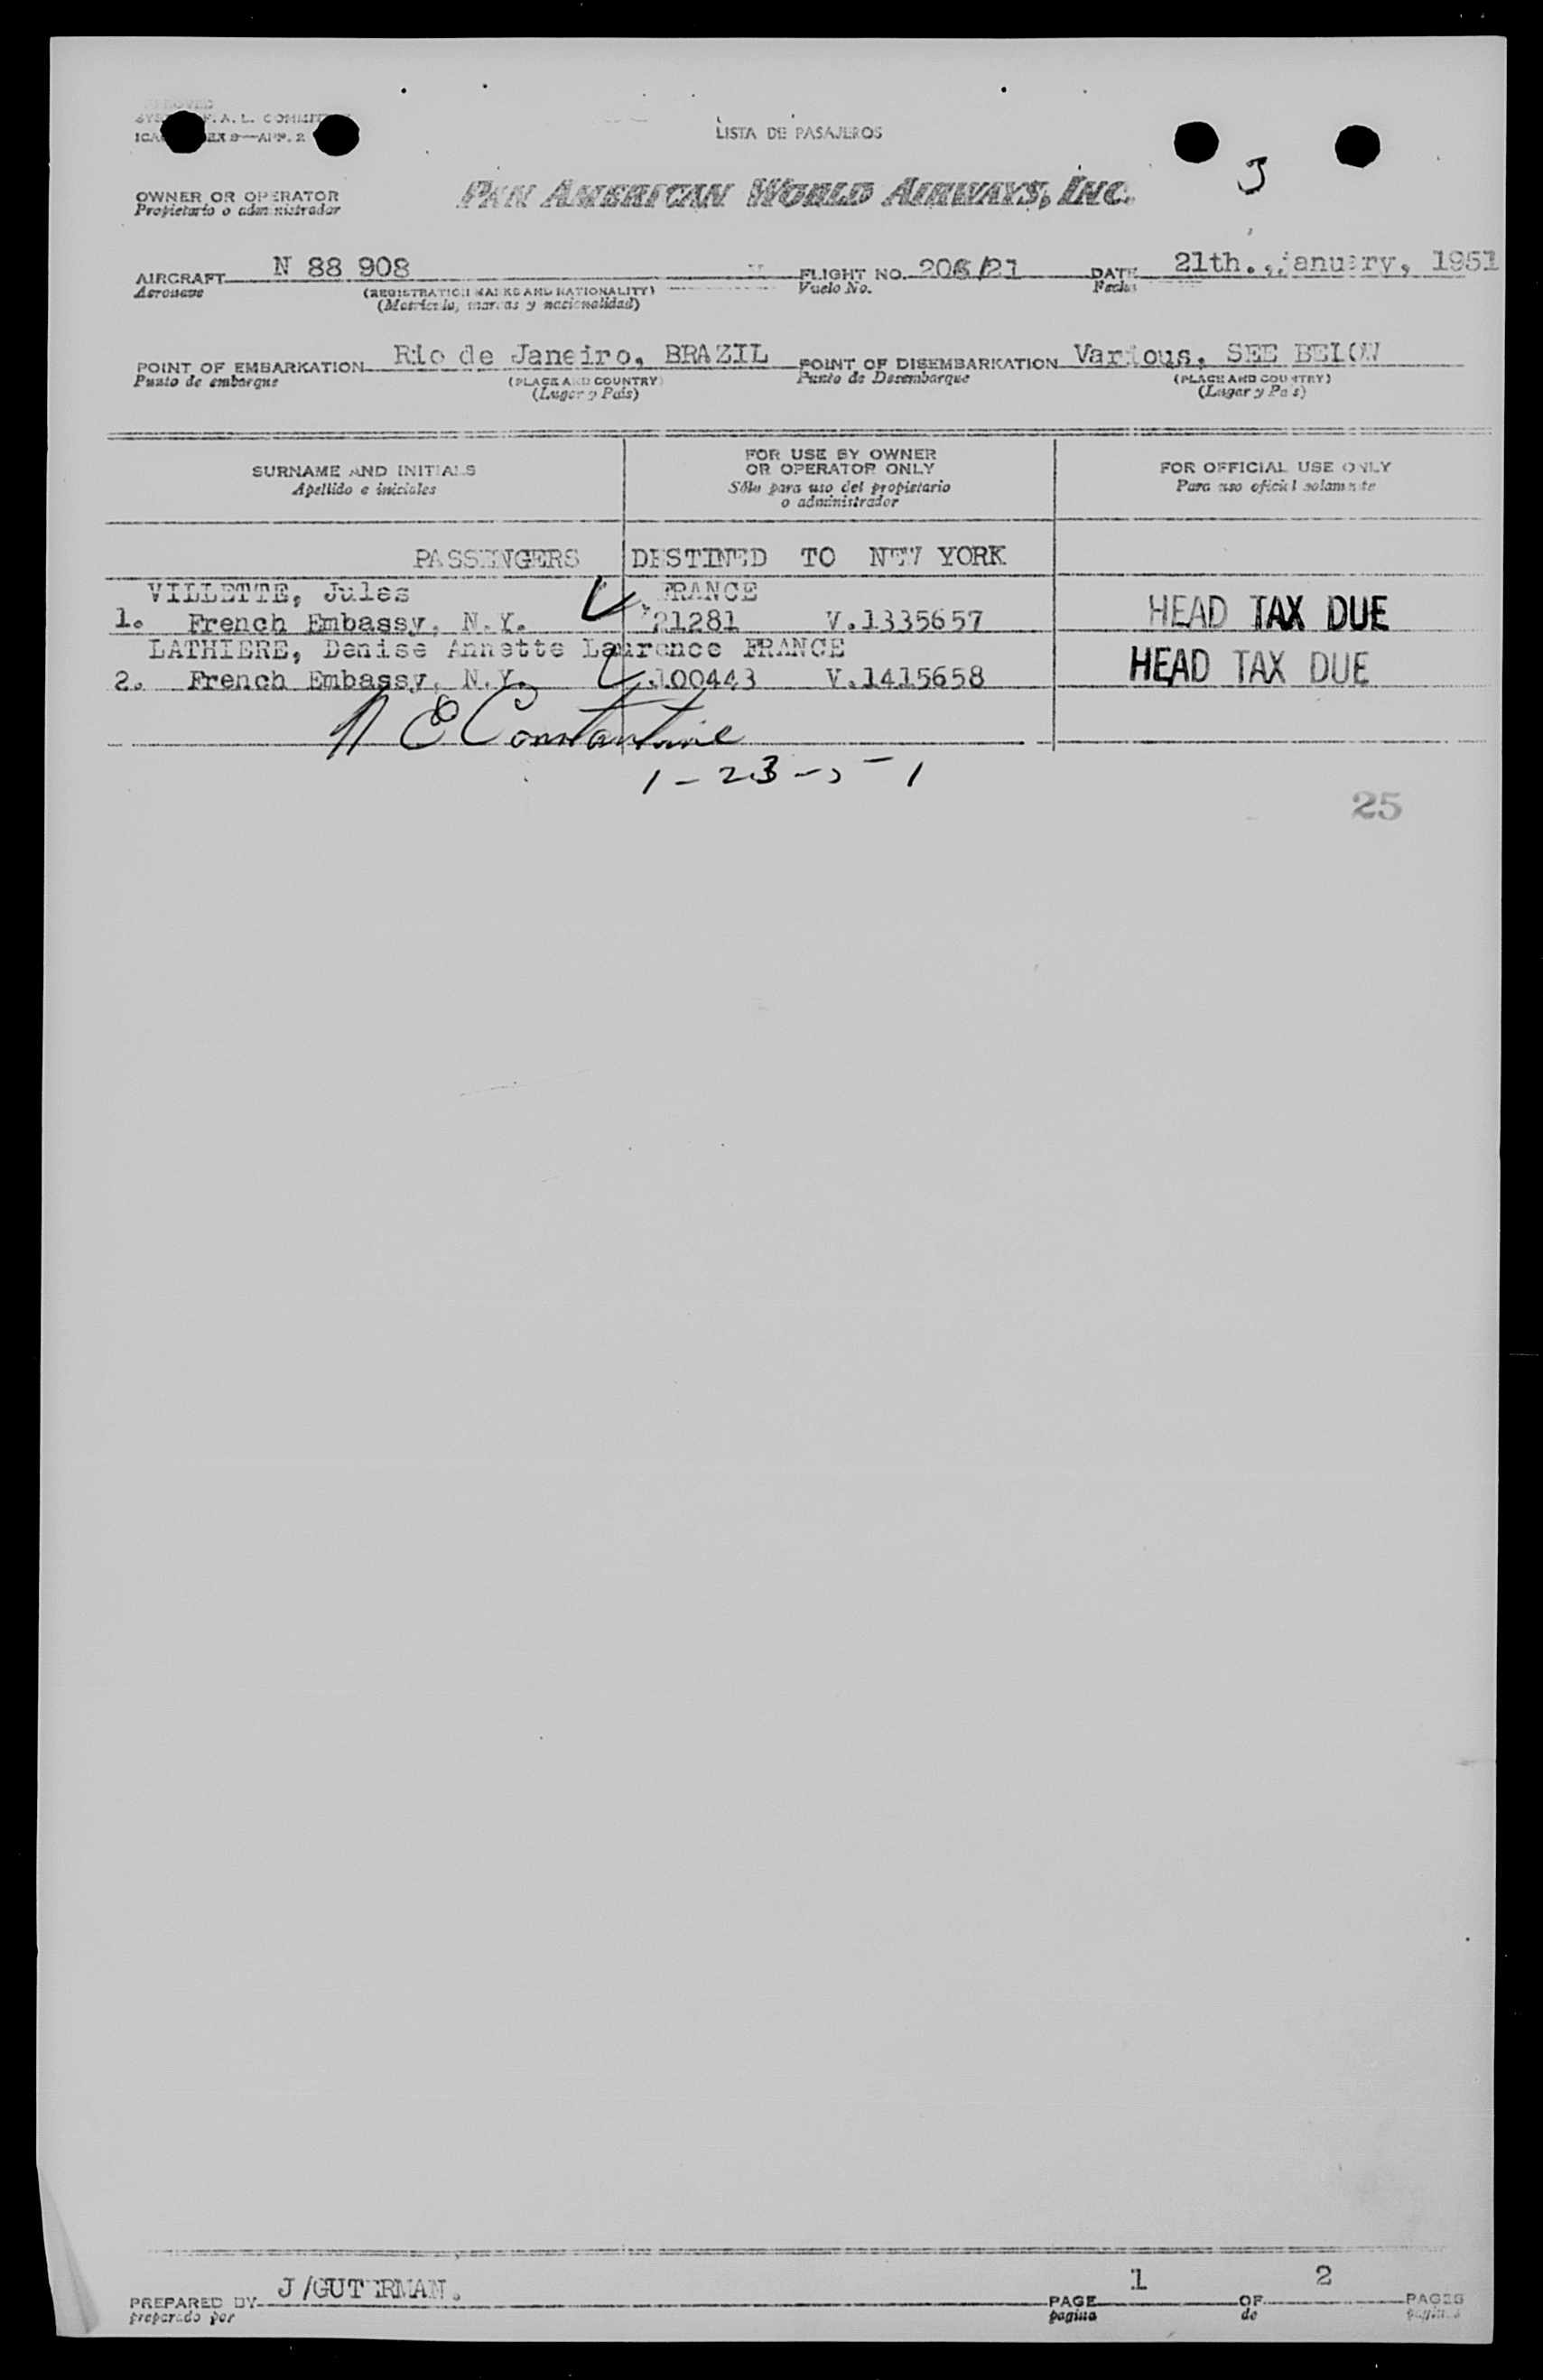 F. A. L.
LISTA DE PASAJEROS
OWNER OR OPERATOR
Propietario o administrador
PAN AMERICAN WORLD AIRWAYS, INC.
AIRCRAFT N 88 908 FLIGHT NO. DATE 21th., january, 1951
Aeronave (REGISTRATION MARKS AND NATIONALITY) Vuelo No. Fecha
(Matrícula, marcas y nacionalidad)
POINT OF EMBARKATION Rio de Janeiro, BRAZIL POINT OF DISEMBARKATION Various, SEE BELOW
Punto de embarque (PLACE AND COUNTRY) Punto de Desembarque (PLACE AND COUNTRY)
(Lugar y País) (Lugar y País)
SURNAME AND INITIALS
Apellido e iniciales
FOR USE BY OWNER
OR OPERATOR ONLY
Sólo para uso del propietario
o administrador
FOR OFFICIAL USE ONLY
Para uso oficial solamente
PASSENGERS DESTINED TO NEW YORK
VILLETTE, Jules FRANCE
1. French Embassy, N.Y. 21281 V.1335657 HEAD TAX DUE
LATHIERE, Denise Annette Laurence FRANCE
2. French Embassy, N.Y. 100443 V.1415658 HEAD TAX DUE
N E Constantine
1-23-51
25
PREPARED BY J/GUTERMAN. PAGE 1 OF 2 PAGES
preparado por pagina de paginas